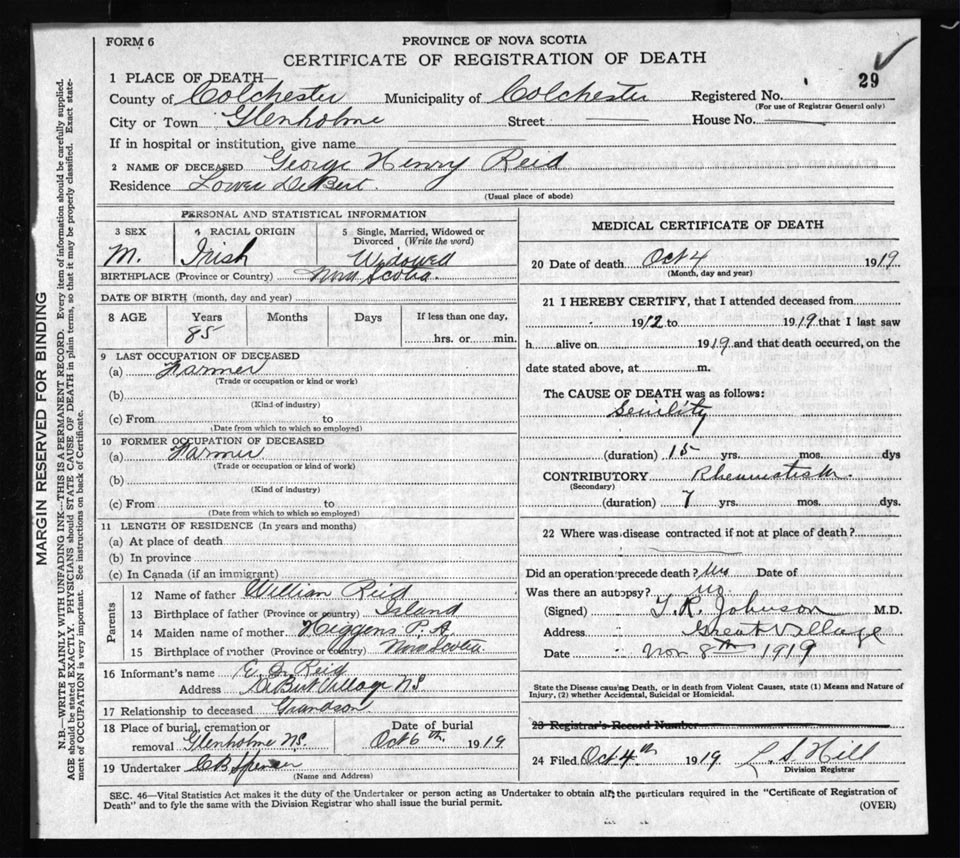 FORM 6
PROVINCE OF NOVA SCOTIA
CERTIFICATE OF REGISTRATION OF DEATH
29
1 PLACE OF DEATH—
County of Colchester Municipality of Colchester Registered No.
(For use of Registrar General only)
City or Town Glenholme Street House No.
If in hospital or institution, give name
2 NAME OF DECEASED George Henry Reid
Residence Lower DeBert.
(Usual place of abode)
PERSONAL AND STATISTICAL INFORMATION
3 SEX 4 RACIAL ORIGIN 5 Single, Married, Widowed or Divorced (Write the word)
M. Irish Widowed
BIRTHPLACE (Province or Country) Nova Scotia.
DATE OF BIRTH (month, day and year)
8 AGE Years Months Days If less than one day,
85 hrs. or min.
9 LAST OCCUPATION OF DECEASED
(a) Farmer
(Trade or occupation or kind or work)
(b)
(Kind of industry)
(c) From to
(Date from which to which so employed)
10 FORMER OCCUPATION OF DECEASED
(a) Farmer
(Trade or occupation or kind of work)
(b)
(Kind of industry)
(c) From to
(Date from which to which so employed)
11 LENGTH OF RESIDENCE (In years and months)
(a) At place of death
(b) In province
(c) In Canada (if an immigrant)
Parents
12 Name of father William Reid
13 Birthplace of father (Province or country) Island
14 Maiden name of mother Higgens P. A.
15 Birthplace of mother (Province or country) Nova Scotia.
16 Informant's name Reid
Address DeBert Village NS
17 Relationship to deceased Grandson
18 Place of burial, cremation or Date of burial
removal Glenholme NS. Oct 6th. 1919.
19 Undertaker CB Spencer
(Name and Address)
MEDICAL CERTIFICATE OF DEATH
20 Date of death Oct 4 1919
(Month, day and year)
21 I HEREBY CERTIFY, that I attended deceased from
1912 to 1919 that I last saw
h alive on 1919 and that death occurred, on the
date stated above, at m.
The CAUSE OF DEATH was as follows:
Senility
(duration) 15 yrs. mos. dys
CONTRIBUTORY Rheumatism.
(Secondary)
(duration) 7 yrs. mos. dys.
22 Where was disease contracted if not at place of death?
Did an operation precede death? Date of
Was there an autopsy? no.
(Signed) T. R. Johnson M.D.
Address Great Village
Date Nov 8th 1919
State the Disease causing Death, or in death from Violent Causes, state (1) Means and Nature of
Injury, (2) whether Accidental, Suicidal or Homicidal.
23 Registrar's Record Number
24 Filed Oct 4th 1919. L. S Hill
Division Registrar
SEC. 46—Vital Statistics Act makes it the duty of the Undertaker or person acting as Undertaker to obtain all the particulars required in the "Certificate of Registration of
Death" and to fyle the same with the Division Registrar who shall issue the burial permit. (OVER)
MARGIN RESERVED FOR BINDING
N.B.—WRITE PLAINLY WITH UNFADING INK—THIS IS A PERMANENT RECORD. Every item of information should be carefully supplied.
AGE should be stated EXACTLY. PHYSICIANS should STATE CAUSE OF DEATH in plain terms, so that it may be properly classified. Exact statement
of OCCUPATION is very important. See instructions on back of Certificate.